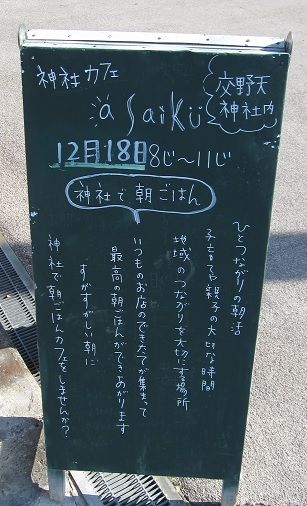 神社カフェ
asaikü
交野天
神社内
12月18日8じ~11じ
神社で朝ごはん
ひとつながりの朝活
子育て親子の大切な時間
地域のつながりを大切にする場所
いつものお店のできたてが集まって
最高の朝ごはんができあがります
すがすがしい朝に
神社で朝ごはんカフェをしませんか?